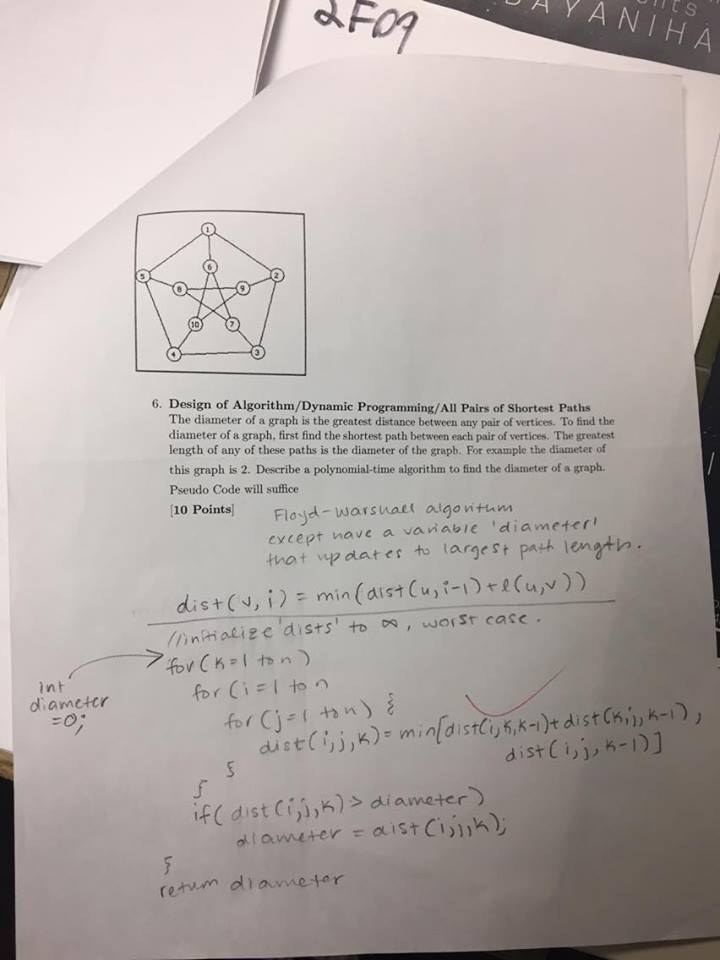 2F09
AYANIHA
1
6
5
2
8
9
10
7
4
3
6. Design of Algorithm/Dynamic Programming/All Pairs of Shortest Paths
The diameter of a graph is the greatest distance between any pair of vertices. To find the
diameter of a graph, first find the shortest path between each pair of vertices. The greatest
length of any of these paths is the diameter of the graph. For example the diameter of
this graph is 2. Describe a polynomial-time algorithm to find the diameter of a graph.
Pseudo Code will suffice
[10 Points]
Floyd-Warshall algoritum
except have a variable 'diameter'
that updates to largest path length.
dist(v,i) = min(dist(u,i-1)+l(u,v))
//initialize 'dists' to ∞, worst case.
int
diameter
=0;
for(k=1 to n)
for(i=1 to n
for(j=1 to n) {
dist(i,j,k)=min[dist(i,k,k-1)+dist(k,j,k-1),
dist(i,j,k-1)]
}
}
if(dist(i,j,k)> diameter)
diameter = dist(i,j,k);
}
return diameter